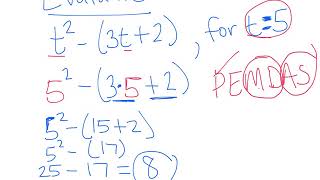 Evaluate
t² - (3t + 2) , for t = 5
5² - (3·5 + 2) PEMDAS
5² - (15 + 2)
5² - (17)
25 - 17 = 8